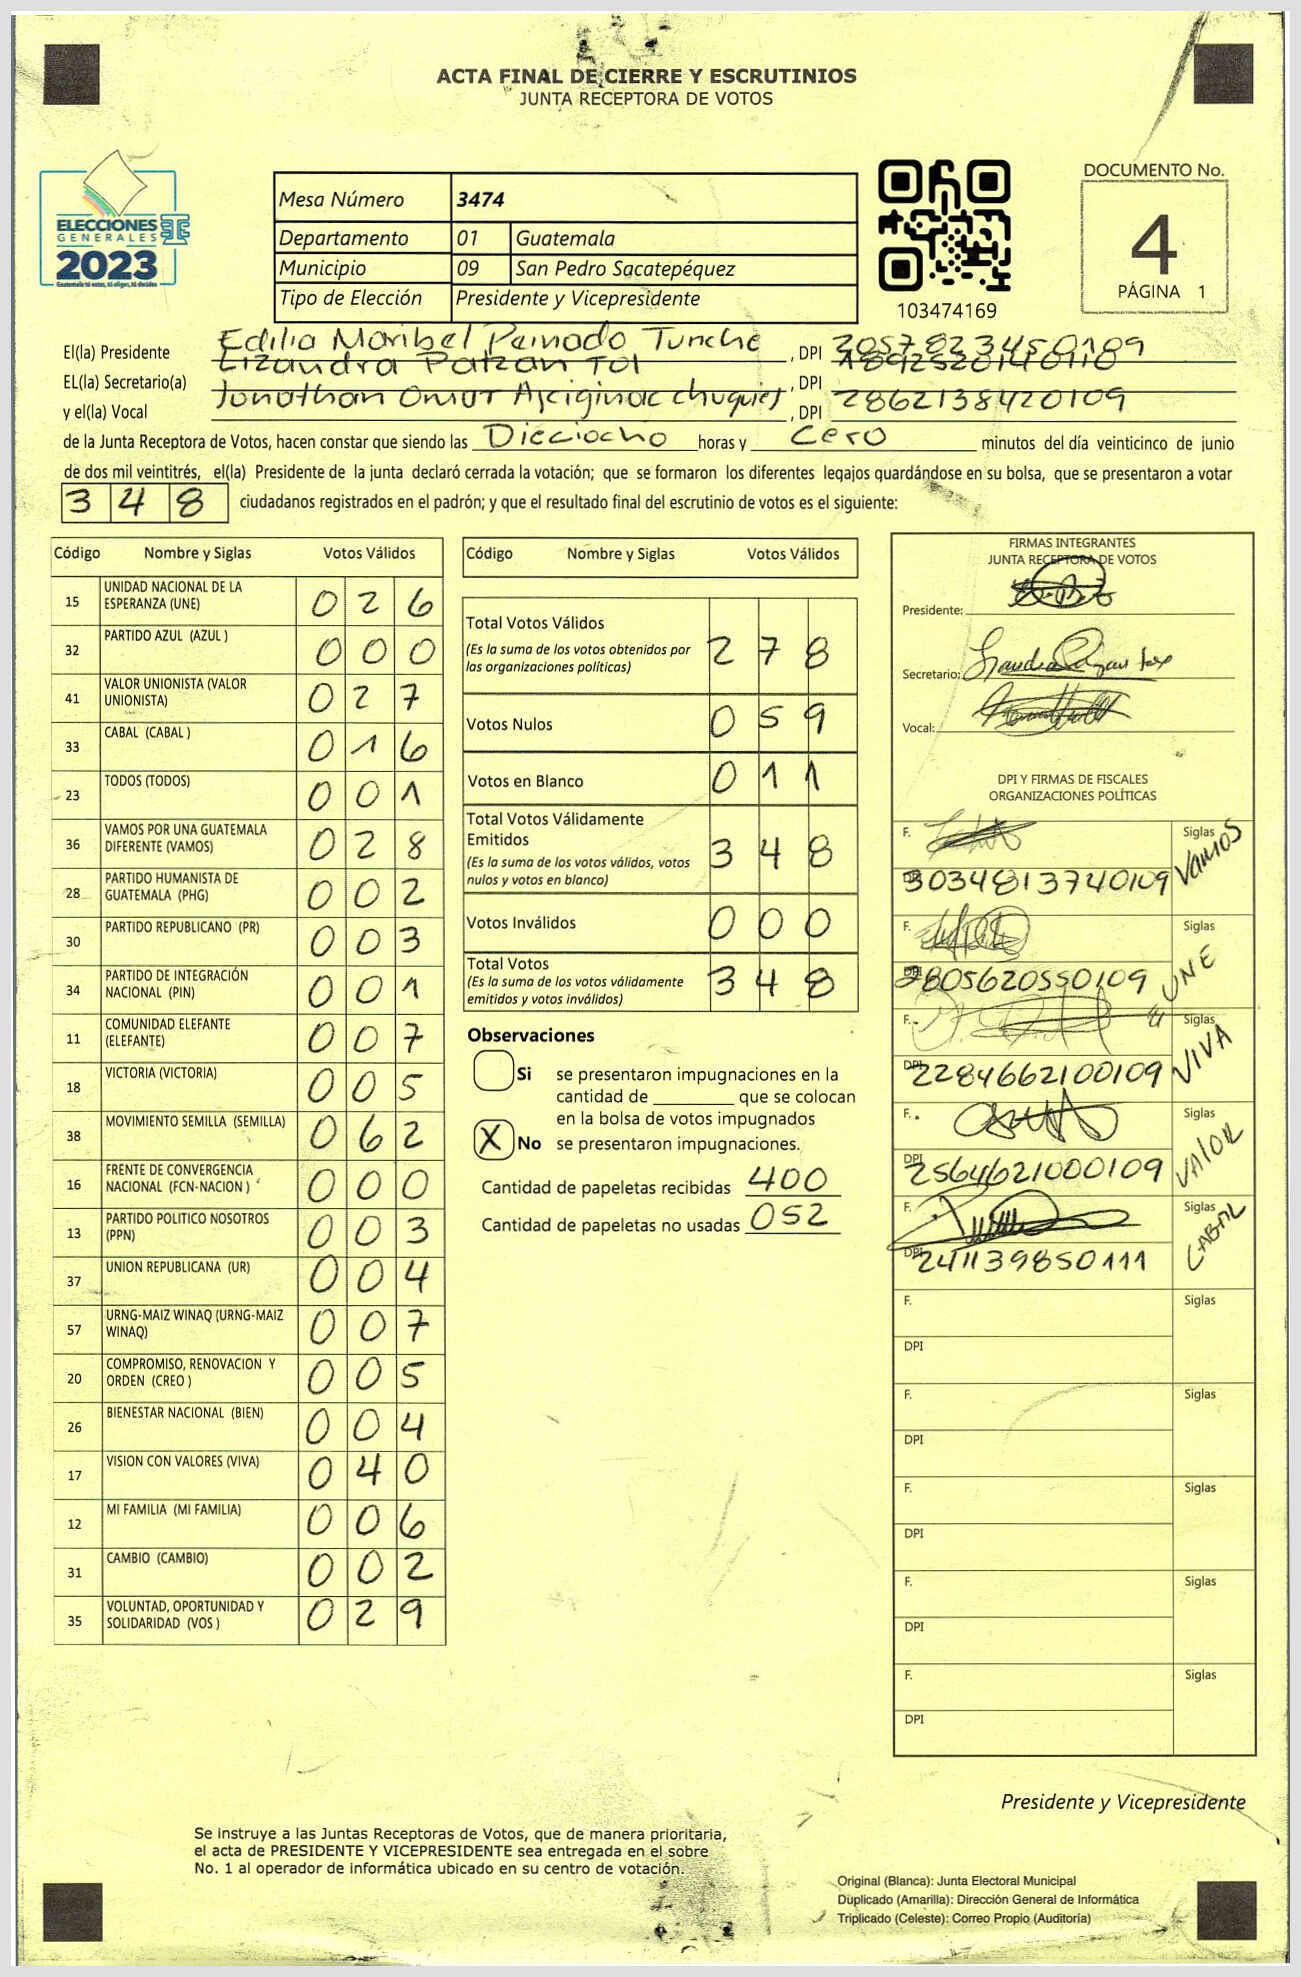 ACTA FINAL DE CIERRE Y ESCRUTINIOS
JUNTA RECEPTORA DE VOTOS
ELECCIONES
GENERALES
2023
Guatemala tú votas, tú eliges, tú decides
Mesa Número 3474
Departamento 01 Guatemala
Municipio 09 San Pedro Sacatepéquez
Tipo de Elección Presidente y Vicepresidente
103474169
DOCUMENTO No.
4
PÁGINA 1
El(la) Presidente Edilia Maribel Peinado Tunche, DPI 2057823450109
EL(la) Secretario(a) Lizandra Patzan Tol, DPI
y el(la) Vocal Jonathan Omar, DPI 2862138420109
de la Junta Receptora de Votos, hacen constar que siendo las Dieciocho horas y Cero minutos del día veinticinco de junio
de dos mil veintitrés, el(la) Presidente de la junta declaró cerrada la votación; que se formaron los diferentes legajos guardándose en su bolsa, que se presentaron a votar
348 ciudadanos registrados en el padrón; y que el resultado final del escrutinio de votos es el siguiente:
Código Nombre y Siglas Votos Válidos
15 UNIDAD NACIONAL DE LA ESPERANZA (UNE) 026
32 PARTIDO AZUL (AZUL ) 000
41 VALOR UNIONISTA (VALOR UNIONISTA) 027
33 CABAL (CABAL ) 016
23 TODOS (TODOS) 001
36 VAMOS POR UNA GUATEMALA DIFERENTE (VAMOS) 028
28 PARTIDO HUMANISTA DE GUATEMALA (PHG) 002
30 PARTIDO REPUBLICANO (PR) 003
34 PARTIDO DE INTEGRACIÓN NACIONAL (PIN) 001
11 COMUNIDAD ELEFANTE (ELEFANTE) 007
18 VICTORIA (VICTORIA) 005
38 MOVIMIENTO SEMILLA (SEMILLA) 062
16 FRENTE DE CONVERGENCIA NACIONAL (FCN-NACION ) 000
13 PARTIDO POLITICO NOSOTROS (PPN) 003
37 UNION REPUBLICANA (UR) 004
57 URNG-MAIZ WINAQ (URNG-MAIZ WINAQ) 007
20 COMPROMISO, RENOVACION Y ORDEN (CREO ) 005
26 BIENESTAR NACIONAL (BIEN) 004
17 VISION CON VALORES (VIVA) 040
12 MI FAMILIA (MI FAMILIA) 006
31 CAMBIO (CAMBIO) 002
35 VOLUNTAD, OPORTUNIDAD Y SOLIDARIDAD (VOS ) 029
Código Nombre y Siglas Votos Válidos
Total Votos Válidos 278
(Es la suma de los votos obtenidos por las organizaciones políticas)
Votos Nulos 059
Votos en Blanco 011
Total Votos Válidamente Emitidos 348
(Es la suma de los votos válidos, votos nulos y votos en blanco)
Votos Inválidos 000
Total Votos 348
(Es la suma de los votos válidamente emitidos y votos inválidos)
Observaciones
Si se presentaron impugnaciones en la
cantidad de ________ que se colocan
en la bolsa de votos impugnados
X No se presentaron impugnaciones.
Cantidad de papeletas recibidas 400
Cantidad de papeletas no usadas 052
FIRMAS INTEGRANTES
JUNTA RECEPTORA DE VOTOS
Presidente:
Secretario:
Vocal:
DPI Y FIRMAS DE FISCALES
ORGANIZACIONES POLÍTICAS
F. Siglas VAMOS
DPI 3034813740109
F. Siglas UNE
DPI 2805620550109
F. Siglas VIVA
DPI 2284662100109
F. Siglas VALOR
DPI 2564621000109
F. Siglas CABAL
DPI 241139850111
F. Siglas
DPI
F. Siglas
DPI
F. Siglas
DPI
F. Siglas
DPI
F. Siglas
DPI
Presidente y Vicepresidente
Se instruye a las Juntas Receptoras de Votos, que de manera prioritaria,
el acta de PRESIDENTE Y VICEPRESIDENTE sea entregada en el sobre
No. 1 al operador de informática ubicado en su centro de votación.
Original (Blanca): Junta Electoral Municipal
Duplicado (Amarilla): Dirección General de Informática
Triplicado (Celeste): Correo Propio (Auditoría)